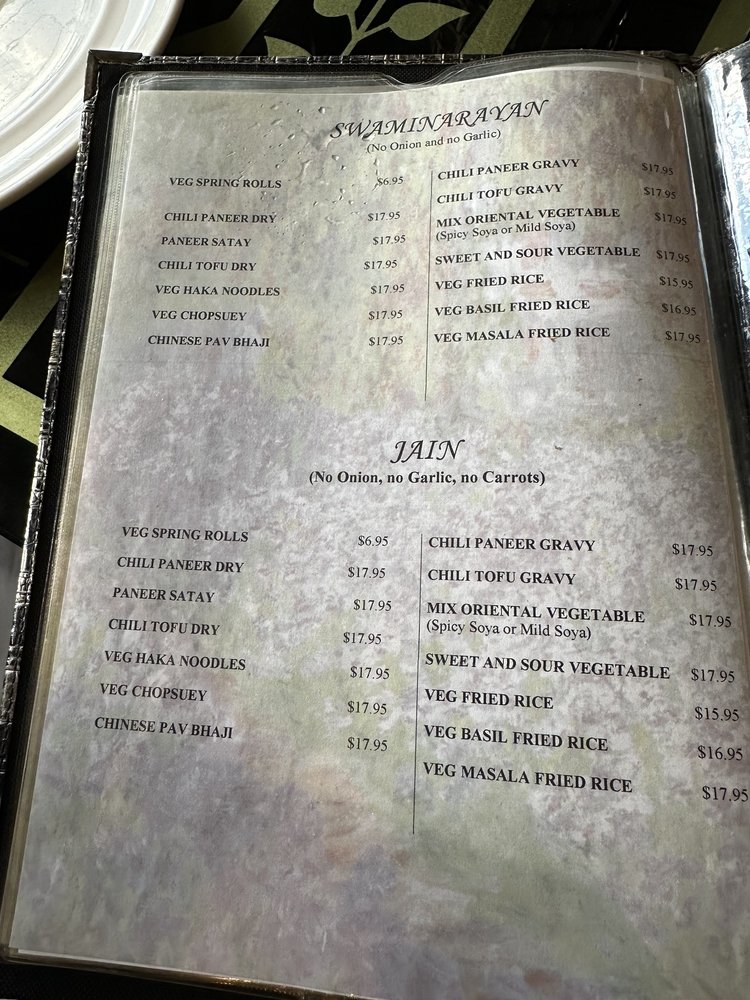 SWAMINARAYAN
(No Onion and no Garlic)
VEG SPRING ROLLS $6.95
CHILI PANEER DRY $17.95
PANEER SATAY $17.95
CHILI TOFU DRY $17.95
VEG HAKA NOODLES $17.95
VEG CHOPSUEY $17.95
CHINESE PAV BHAJI $17.95
CHILI PANEER GRAVY $17.95
CHILI TOFU GRAVY $17.95
MIX ORIENTAL VEGETABLE $17.95
(Spicy Soya or Mild Soya)
SWEET AND SOUR VEGETABLE $17.95
VEG FRIED RICE $15.95
VEG BASIL FRIED RICE $16.95
VEG MASALA FRIED RICE $17.95
JAIN
(No Onion, no Garlic, no Carrots)
VEG SPRING ROLLS $6.95
CHILI PANEER DRY $17.95
PANEER SATAY $17.95
CHILI TOFU DRY $17.95
VEG HAKA NOODLES $17.95
VEG CHOPSUEY $17.95
CHINESE PAV BHAJI $17.95
CHILI PANEER GRAVY $17.95
CHILI TOFU GRAVY $17.95
MIX ORIENTAL VEGETABLE $17.95
(Spicy Soya or Mild Soya)
SWEET AND SOUR VEGETABLE $17.95
VEG FRIED RICE $15.95
VEG BASIL FRIED RICE $16.95
VEG MASALA FRIED RICE $17.95